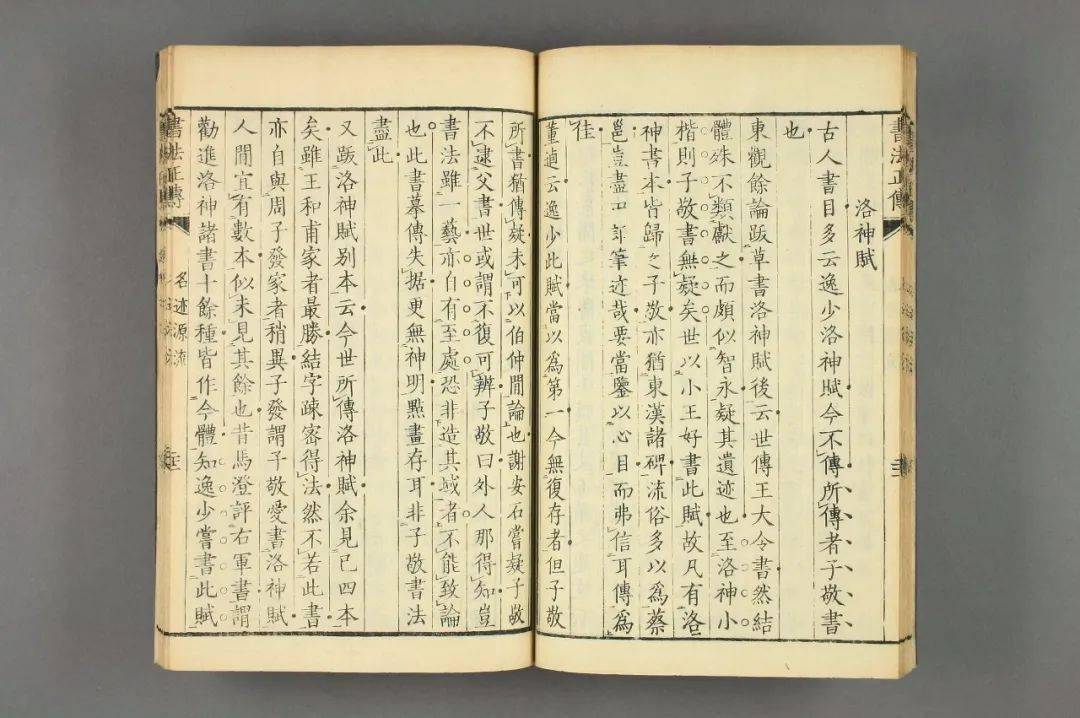 書法正傳
洛神賦
古人書目多云逸少洛神賦今不傳所傳者子敬書
也
東觀餘論跋草書洛神賦後云世傳王大令書然結
體殊不類獻之而頗似智永疑其遺迹也至洛神小
楷則子敬書無疑矣世以小王好書此賦故凡有洛
神書本皆歸之子敬亦猶東漢諸碑流俗多以爲蔡
邕豈盡中郎筆迹哉要當鑒以心目而弗信耳傳爲
佳
董逌云逸少此賦當以爲第一今無復存者但子敬
所書猶傳疑未可以伯仲閒論也謝安石嘗疑子敬
不逮父書世或謂不復可辨子敬曰外人那得知豈
書法雖一藝亦自有至處恐非造其域者不能致論
也此書摹傳失据更無神明點畫存耳非子敬書法
盡此
又跋洛神賦别本云今世所傳洛神賦余見已四本
矣雖王和甫家者最勝結字疎密得法然不若此書
亦自與周子發家者稍異子發謂子敬愛書洛神賦
人閒宜有數本似未見其餘也昔馬澄評右軍書謂
勸進洛神諸書十餘種皆作今體知逸少嘗書此賦
書法正傳
名迹源流